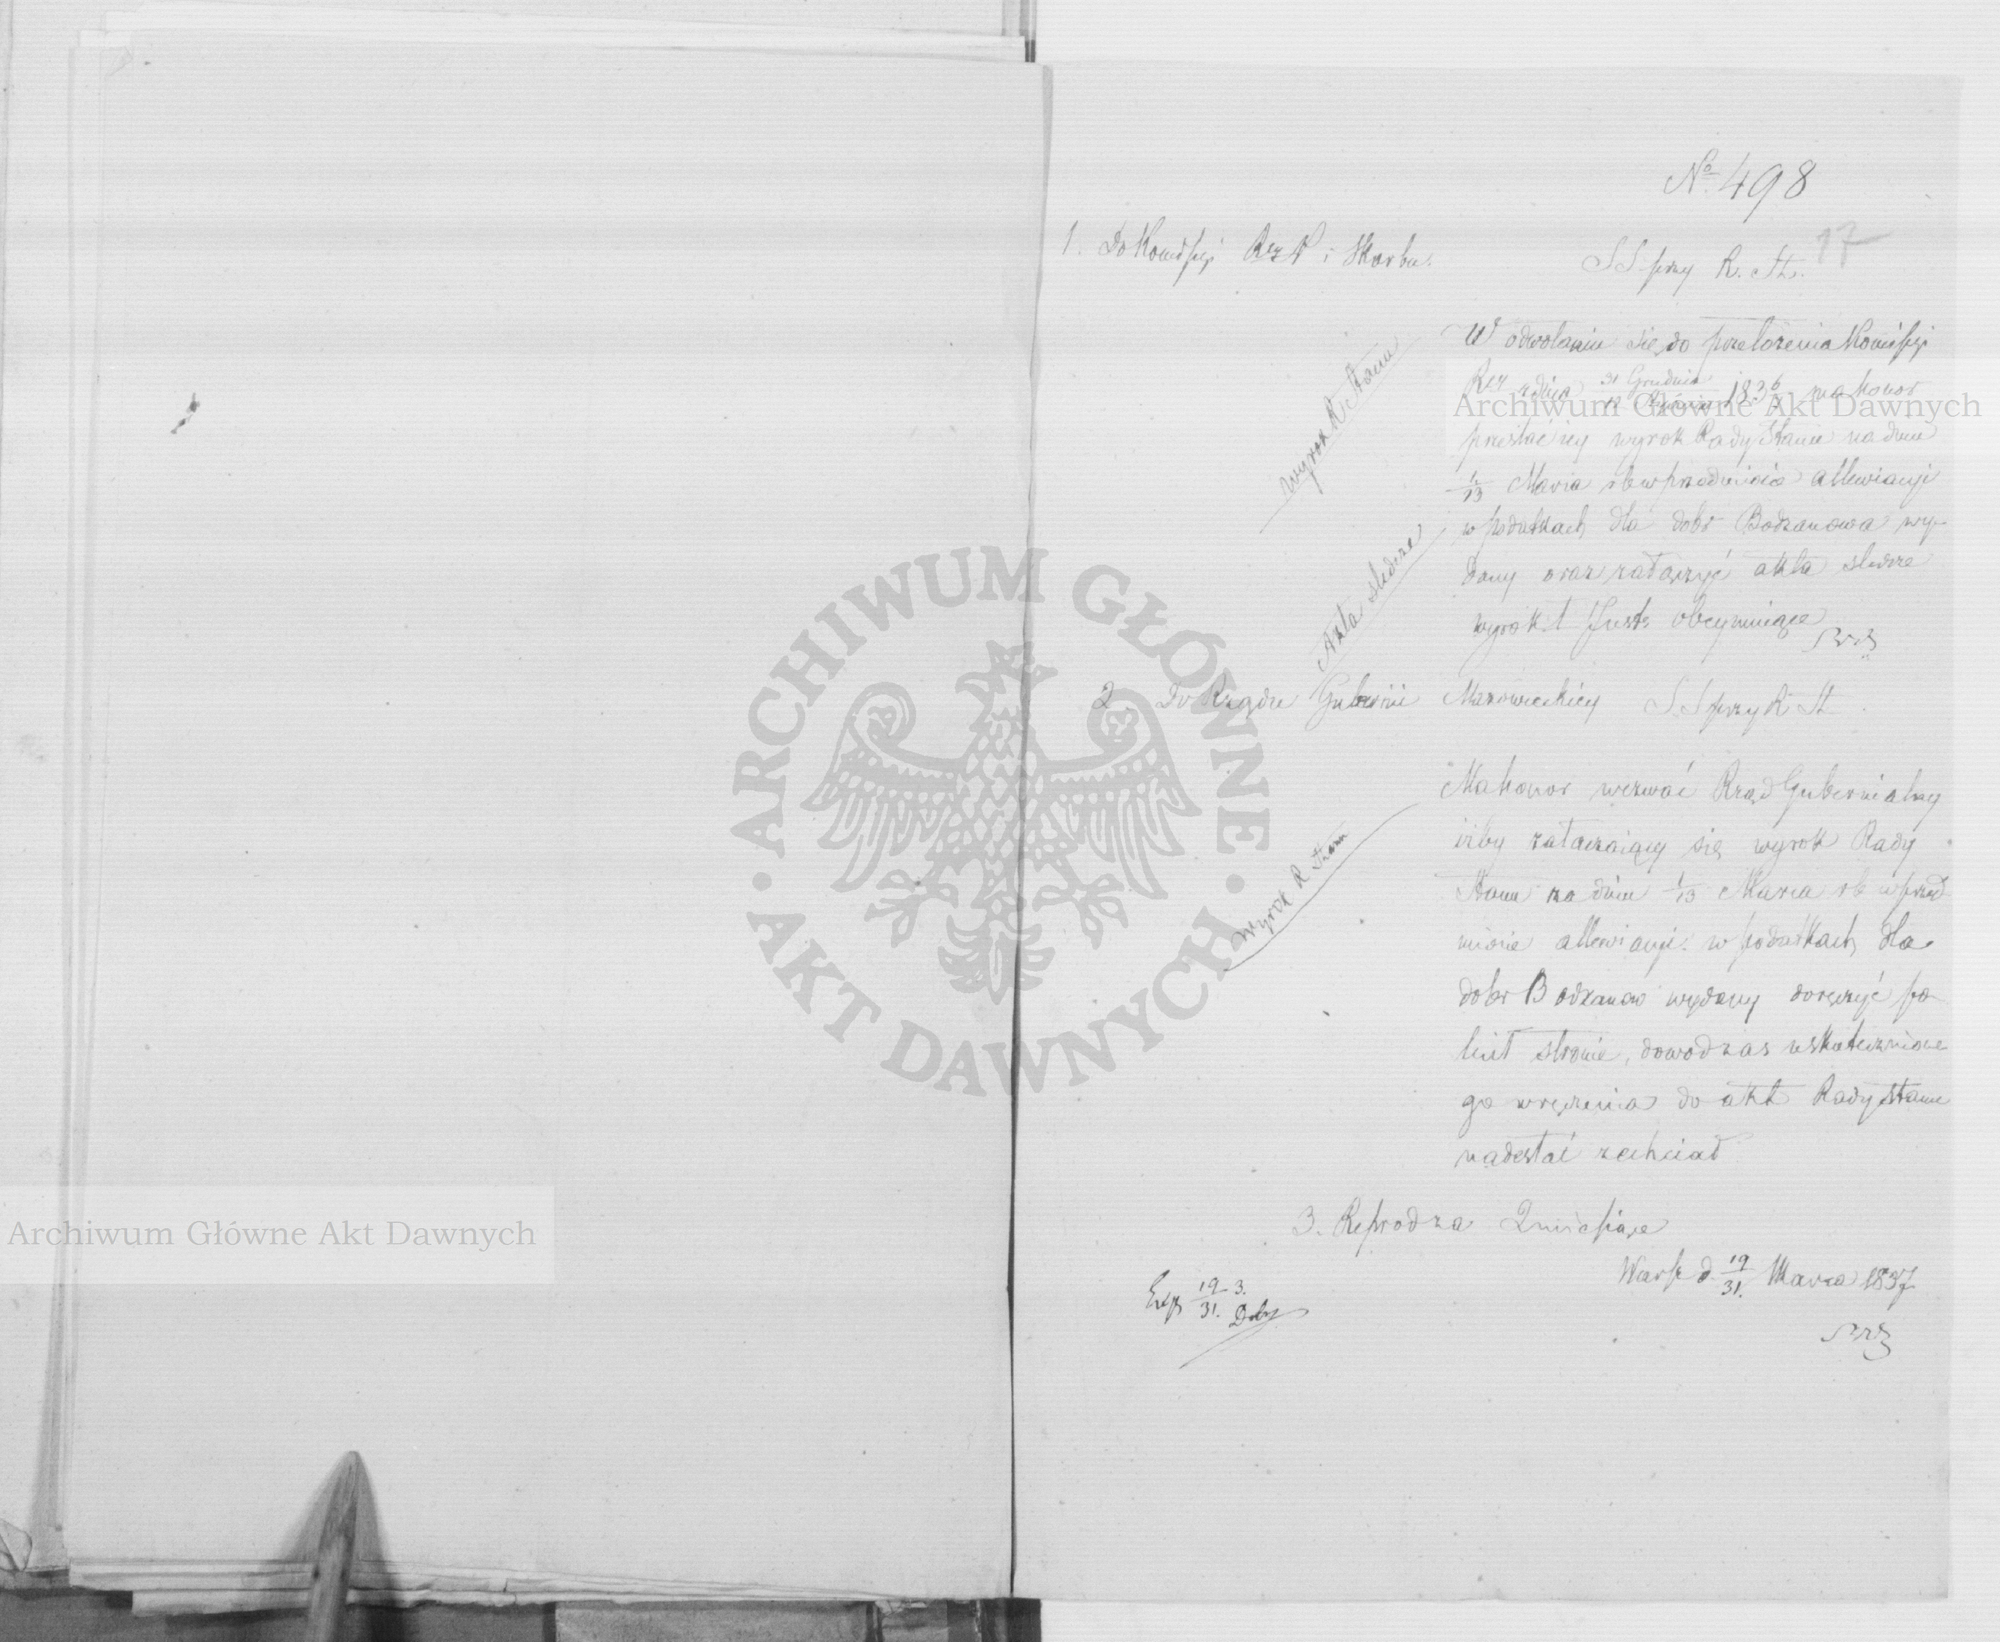 No 498
17
1. Do Komissyi Rzą P i Skarbu.
SS przy R. St.
W odwołaniu się do przełożenia Komissyi
Rzą z dnia 31 Grudnia / 12 Stycznia 1836/7 ma honor
przesłać iey wyrok Rady Stanu na dniu
1/13 Marca rb w przedmiocie allewiacyi
w podatkach dla dobr Bodzanowa wy-
dany oraz załączyć akta sledcze
wyrok I Inst: obeymuiące
Wyrok R Stanu
Akta sledcze
2 Do Rządu Gubernii Mazowieckiey SS przy R St
Ma honor wezwać Rząd Gubernialny
iżby załączaiący się wyrok Rady
Stanu na dniu 1/13 Marca rb w przed-
miocie allewiacyi w podatkach dla
dobr Bodzanow wydany doręczyć po-
lecił stronie, dowod zas uskutecznione-
go wręczenia do akt Rady Stanu
nadesłać zechciał
Wyrok R Stanu
3. Reprodza 2 miesiące
Warsz d. 19/31. Marca 1837
Exp 19/31. 3.
Archiwum Główne Akt Dawnych
Archiwum Główne Akt Dawnych
ARCHIWUM GŁÓWNE • AKT DAWNYCH •